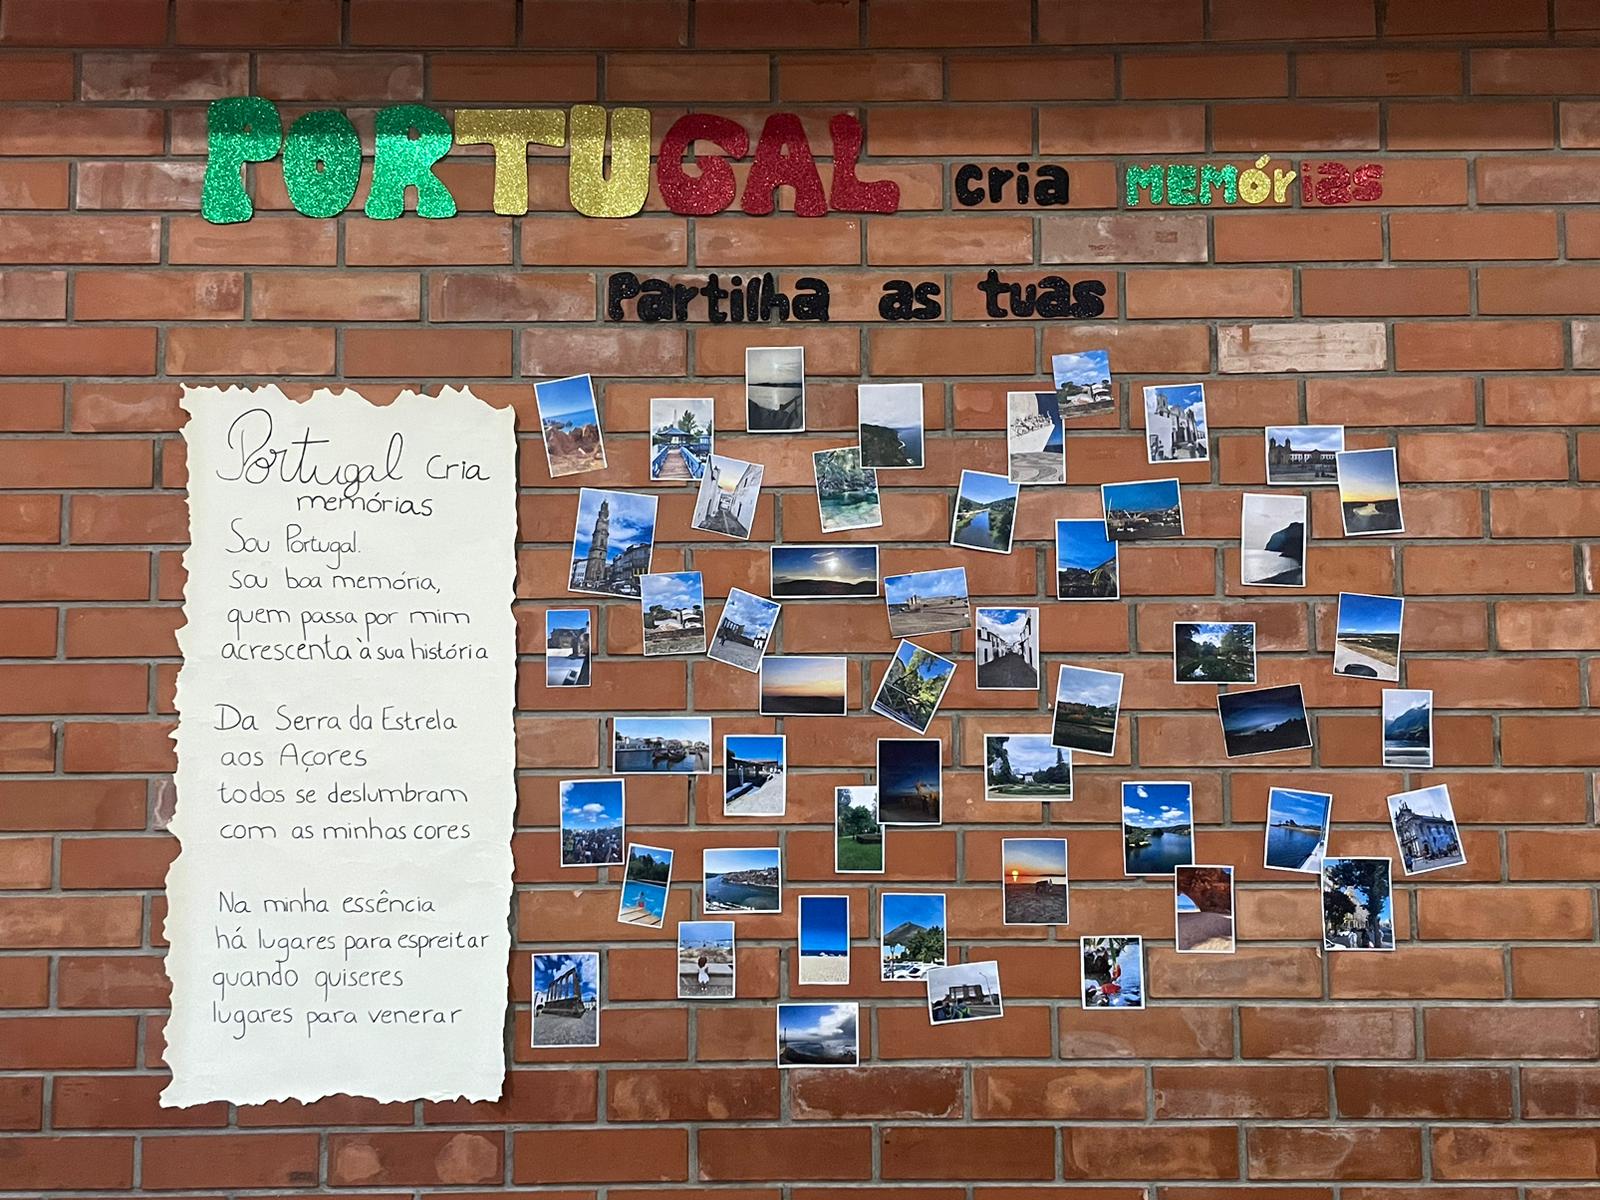 PORTUGAL cria MEMórias
Partilha as tuas
Portugal Cria
memórias
Sou Portugal.
Sou boa memória,
quem passa por mim
acrescenta à sua história
Da Serra da Estrela
aos Açores
todos se deslumbram
com as minhas cores
Na minha essência
há lugares para espreitar
quando quiseres
lugares para venerar